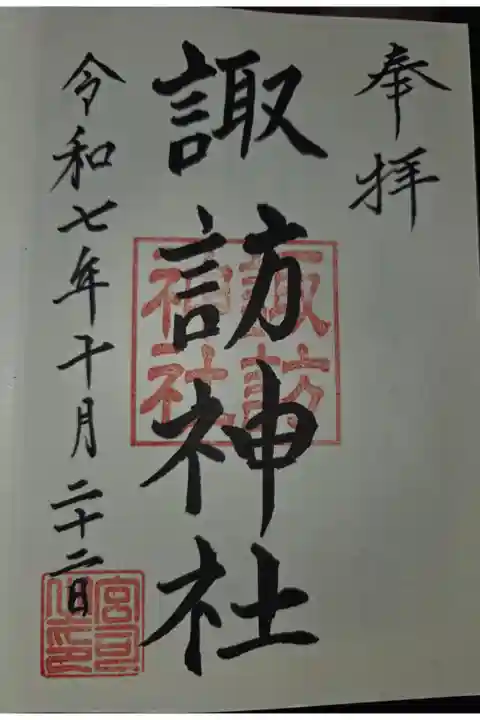 奉拝
諏訪神社
諏訪
神社
令和七年十月二十二日
宮司
之印